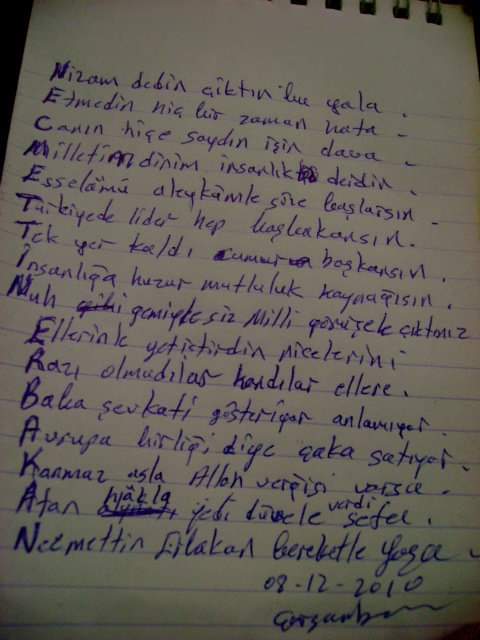 Nizam dedin çıktın bu yola .
Etmedin hiç bir zaman hata -
Canın hiçe saydın için dava -
Milletim dinim insanlık dedin .
Esselâmü aleykümle söze başlarsın -
Türkiyede lider hep başbakansın .
Tek yer kaldı cumur başkansın .
İnsanlığa huzur mutluluk kaynağısın .
Nuh gemiyle siz Milli görüşle çıktınız
Ellerinle yetiştirdin nicelerini
Razı olmadılar kandılar ellere .
Baba şevkati gösteriyor anlamıyor .
Avrupa birliği diye çaka satıyor .
Kanmaz asla Allah vergisi varsa .
Atan hjâkla yedi düvele verdi sefer .
Necmettin Erbakan bereketle yaşa -
08-12-2010
Çarşamba